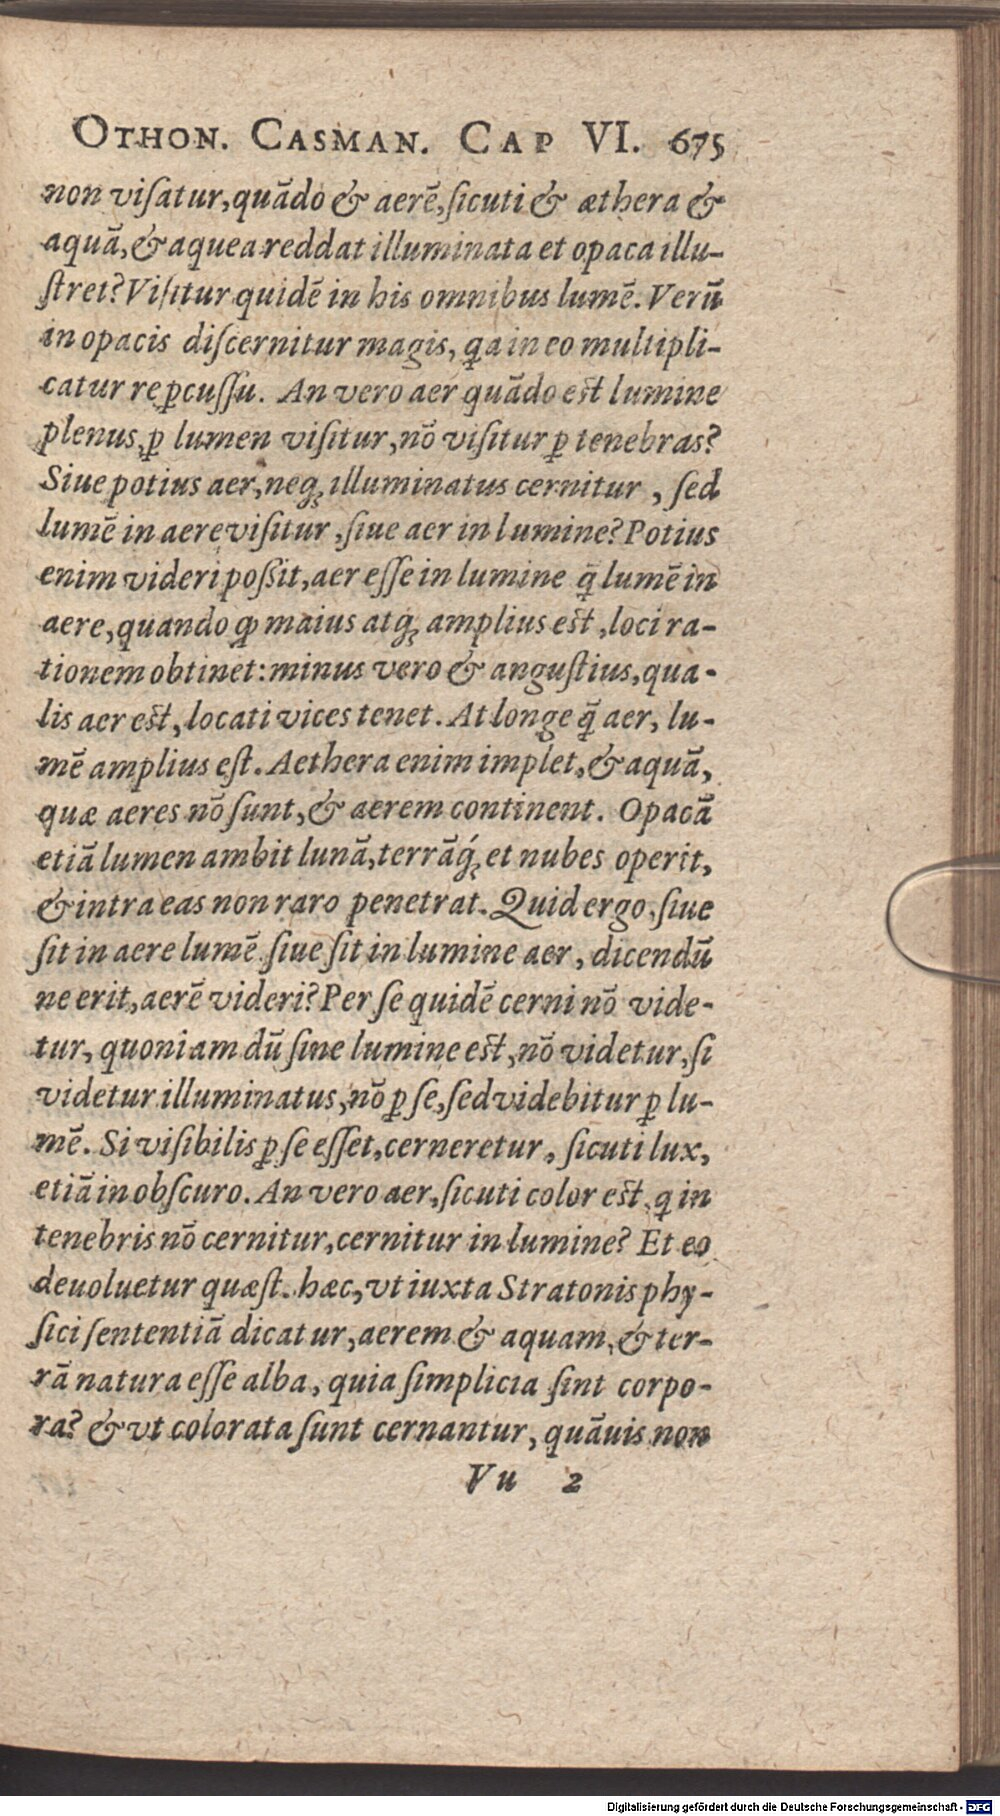 OTHON. CASMAN. CAP VI. 675
non viſatur, quādo & aerē, ſicuti & æthera &
aquā, & aquea reddat illuminata et opaca illu-
ſtret? Viſitur quidē in his omnibus lumē. Verū
in opacis diſcernitur magis, ꝗa in eo multipli-
catur reꝑcuſſu. An vero aer quādo eſt lumine
plenus, ꝑ lumen viſitur, nō viſitur ꝑ tenebras?
Siue potius aer, neqꝫ illuminatus cernitur, ſed
lumē in aere viſitur, ſiue aer in lumine? Potius
enim videri poßit, aer eſſe in lumine q̄ lumē in
aere, quando ꝙ maius atqꝫ amplius eſt, loci ra-
tionem obtinet: minus vero & anguſtius, qua-
lis aer eſt, locati vices tenet. At longe q̄ aer, lu-
mē amplius eſt. Aethera enim implet, & aquā,
quæ aeres nō ſunt, & aerem continent. Opacā
etiā lumen ambit lunā, terrāq́ꝫ et nubes operit,
& intra eas non raro penetrat. Quid ergo, ſiue
ſit in aere lumē ſiue ſit in lumine aer, dicendū
ne erit, aerē videri? Per ſe quidē cerni nō vide-
tur, quoniam dū ſine lumine eſt, nō videtur, ſi
videtur illuminatus, nō ꝑ ſe, ſed videbitur ꝑ lu-
mē. Si viſibilis ꝑ ſe eſſet, cerneretur, ſicuti lux,
etiā in obſcuro. An vero aer, ſicuti color eſt, ꝗ in
tenebris nō cernitur, cernitur in lumine? Et eo
deuoluetur quæſt. hæc, vt iuxta Stratonis phy-
ſici ſententiā dicatur, aerem & aquam, & ter-
rā natura eſſe alba, quia ſimplicia ſint corpo-
ra? & vt colorata ſunt cernantur, quāuis non
Vu 2
Digitalisierung gefördert durch die Deutsche Forschungsgemeinschaft - DFG